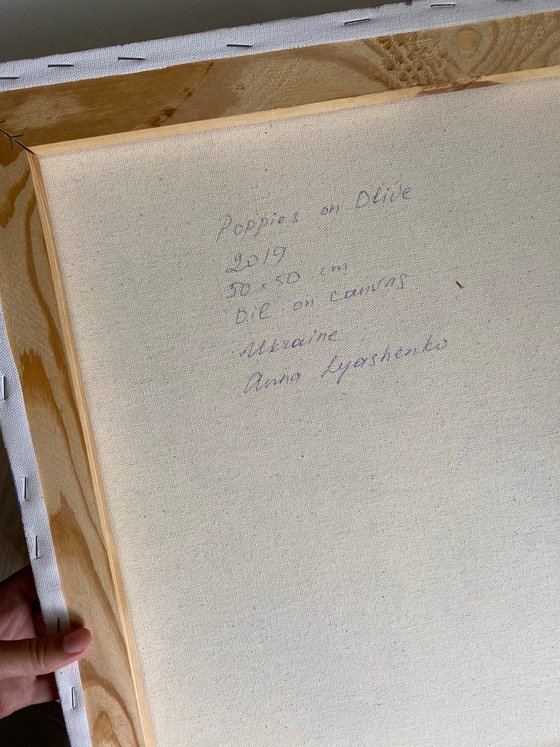 Poppies on Olive
2019
50 x 50 cm
Oil on canvas
Ukraine
Anna Lyashenko